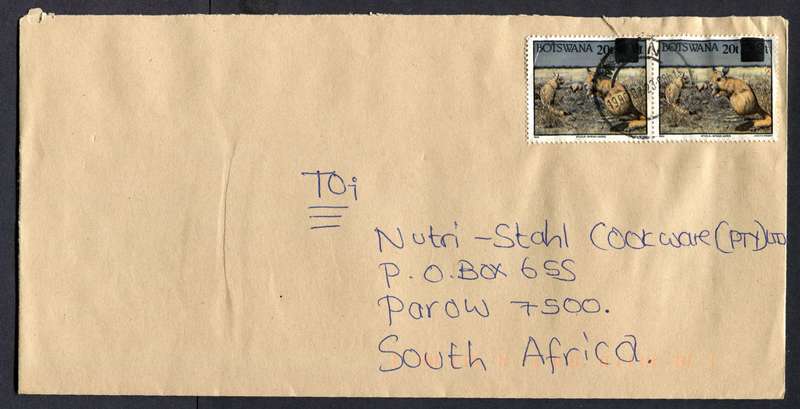 BOTSWANA 20t BOTSWANA 20t
TO:
Nutri-Stahl Cookware (PTY) LTD
P.O.BOX 655
Parow 7500.
South Africa.